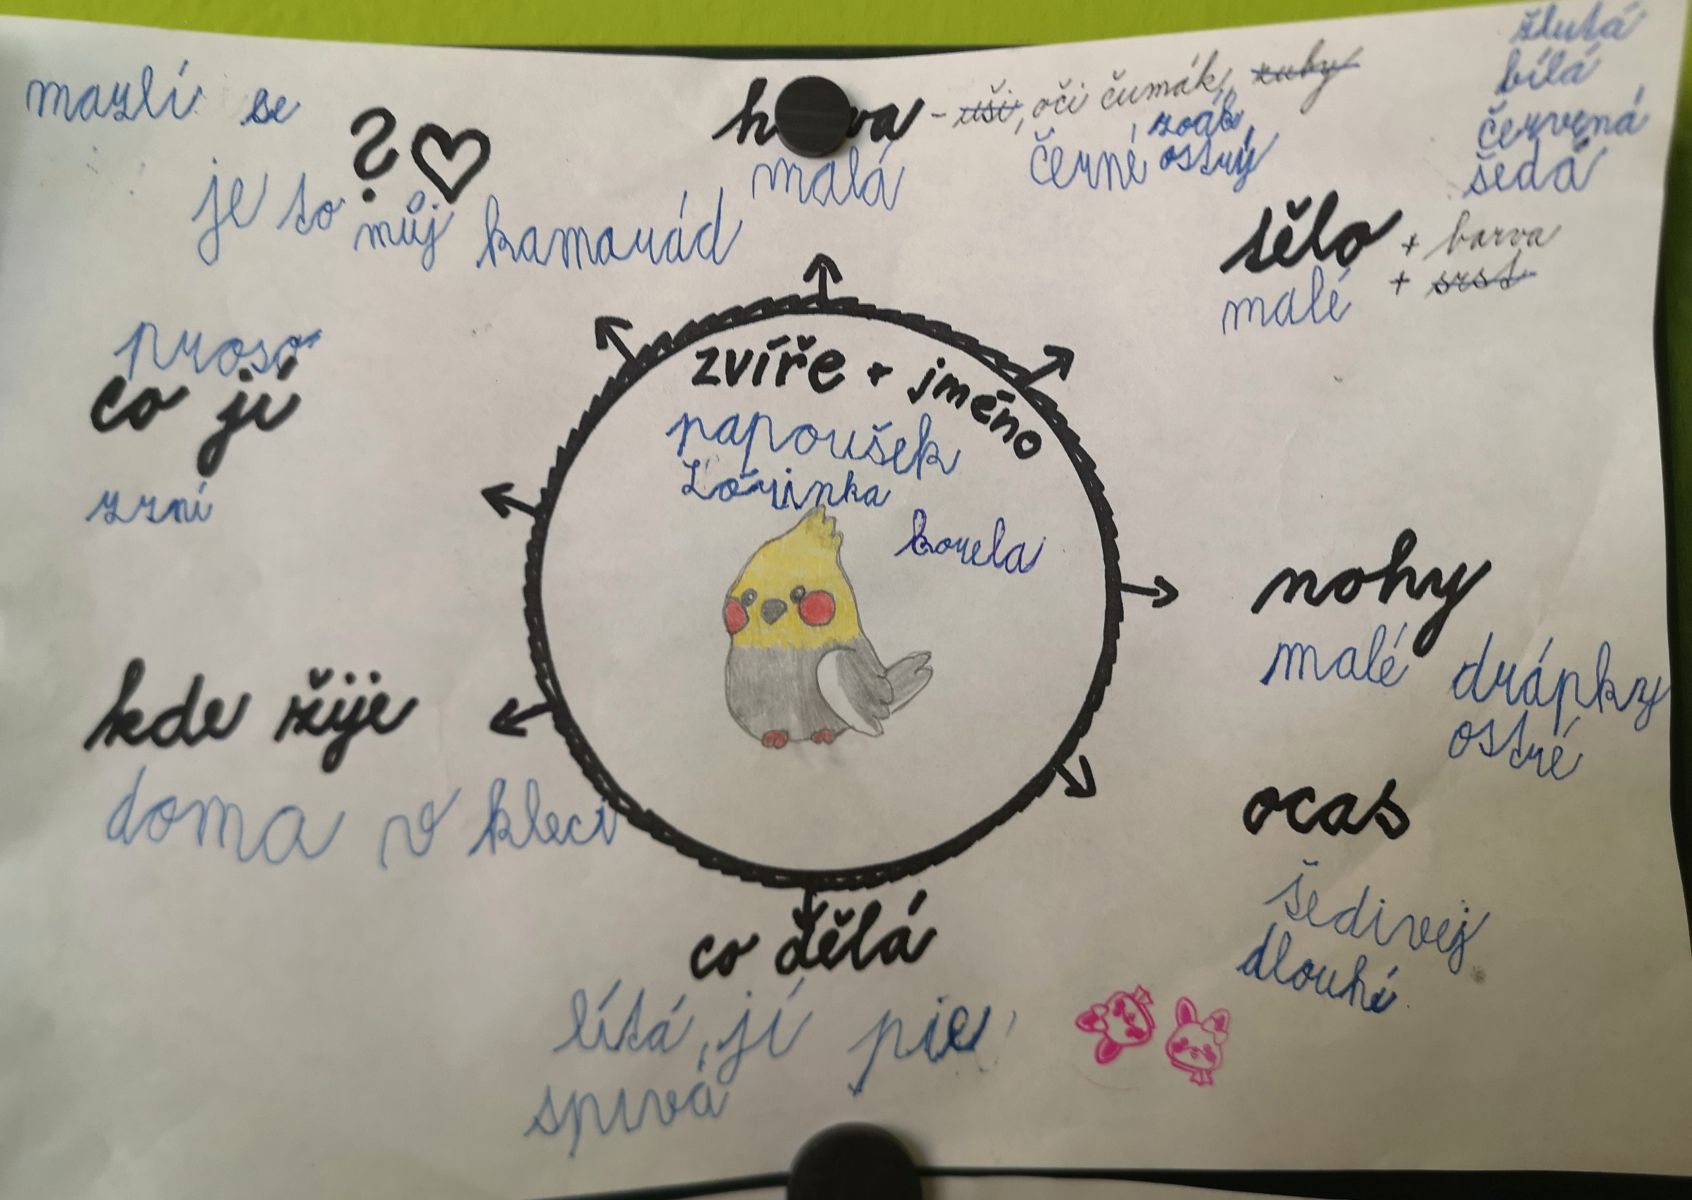 mazlí se
? ♡
je to můj kamarád
hlava - uši, oči čumák, zuby
malá
černé zoák,
ostrý
žlutá
bílá
červená
šedá
tělo + barva
malé + srst
proso
co jí
zrní
zvíře + jméno
papoušek
Lórinka
korela
nohy
malé drápky
ostré
kde žije
doma v kleci
ocas
šedivej
dlouhí
co dělá
lítá, jí pie
spivá